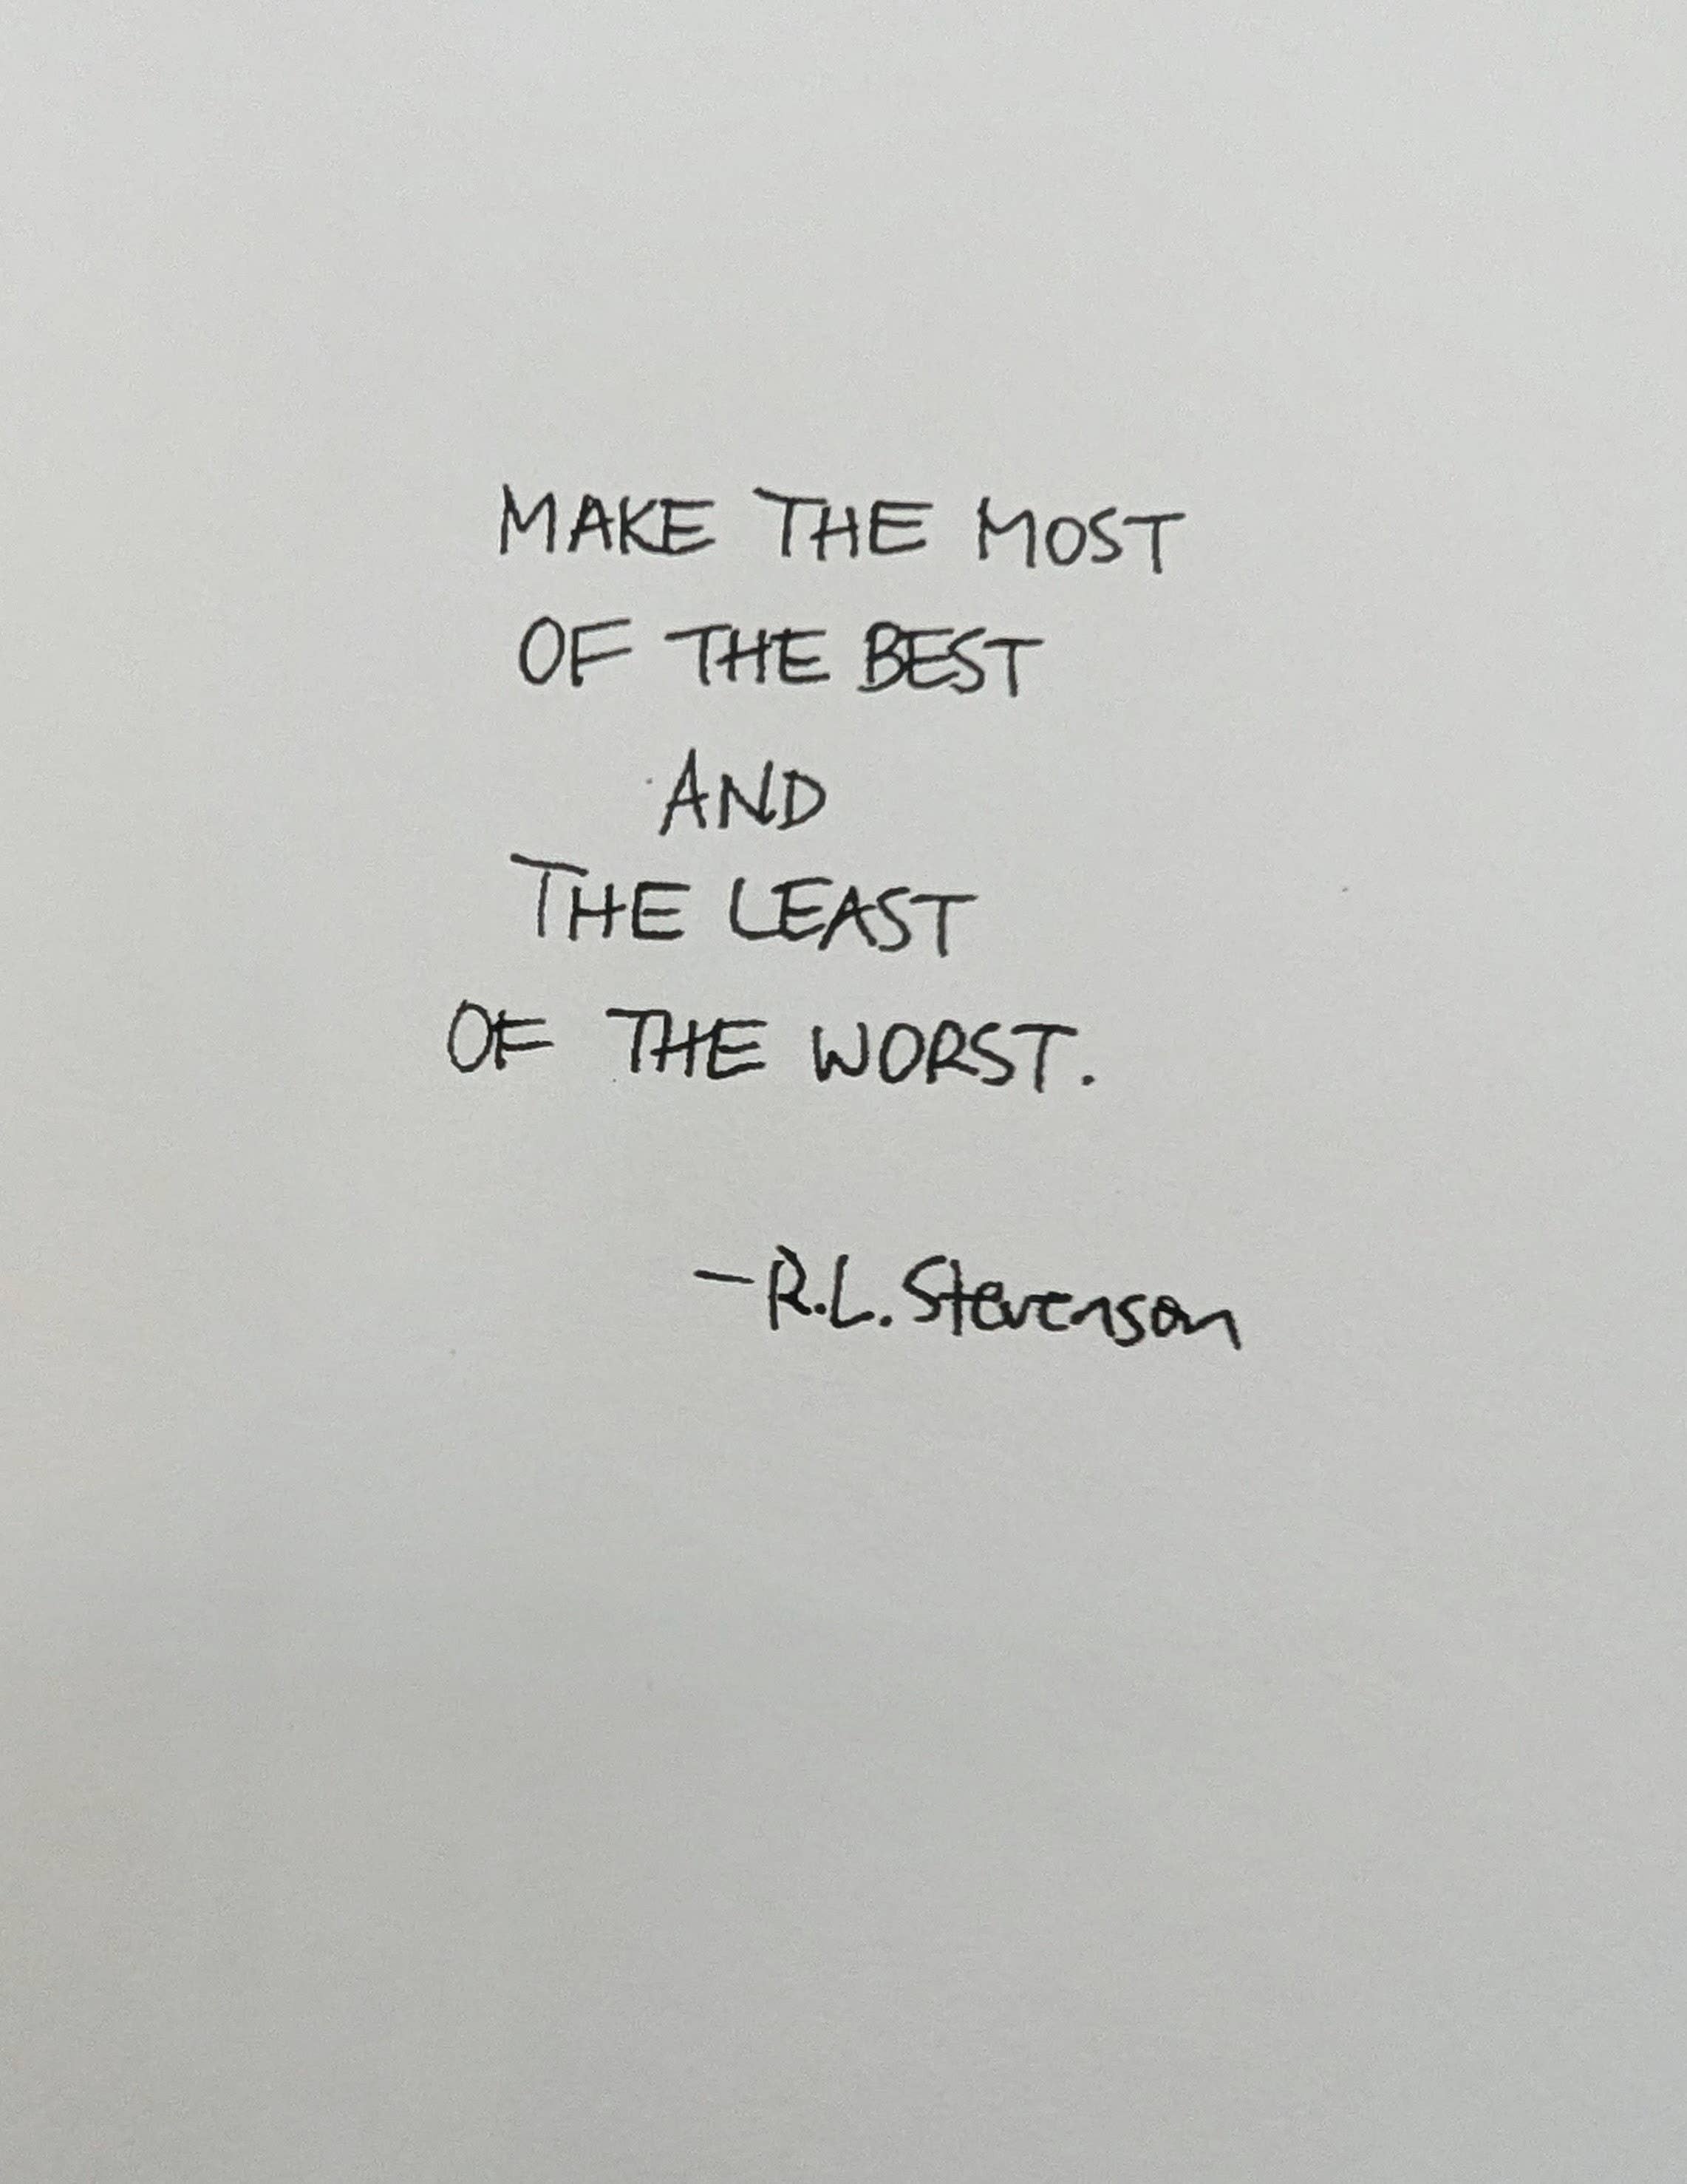 MAKE THE MOST
OF THE BEST
AND
THE LEAST
OF THE WORST.
-R.L. Stevenson